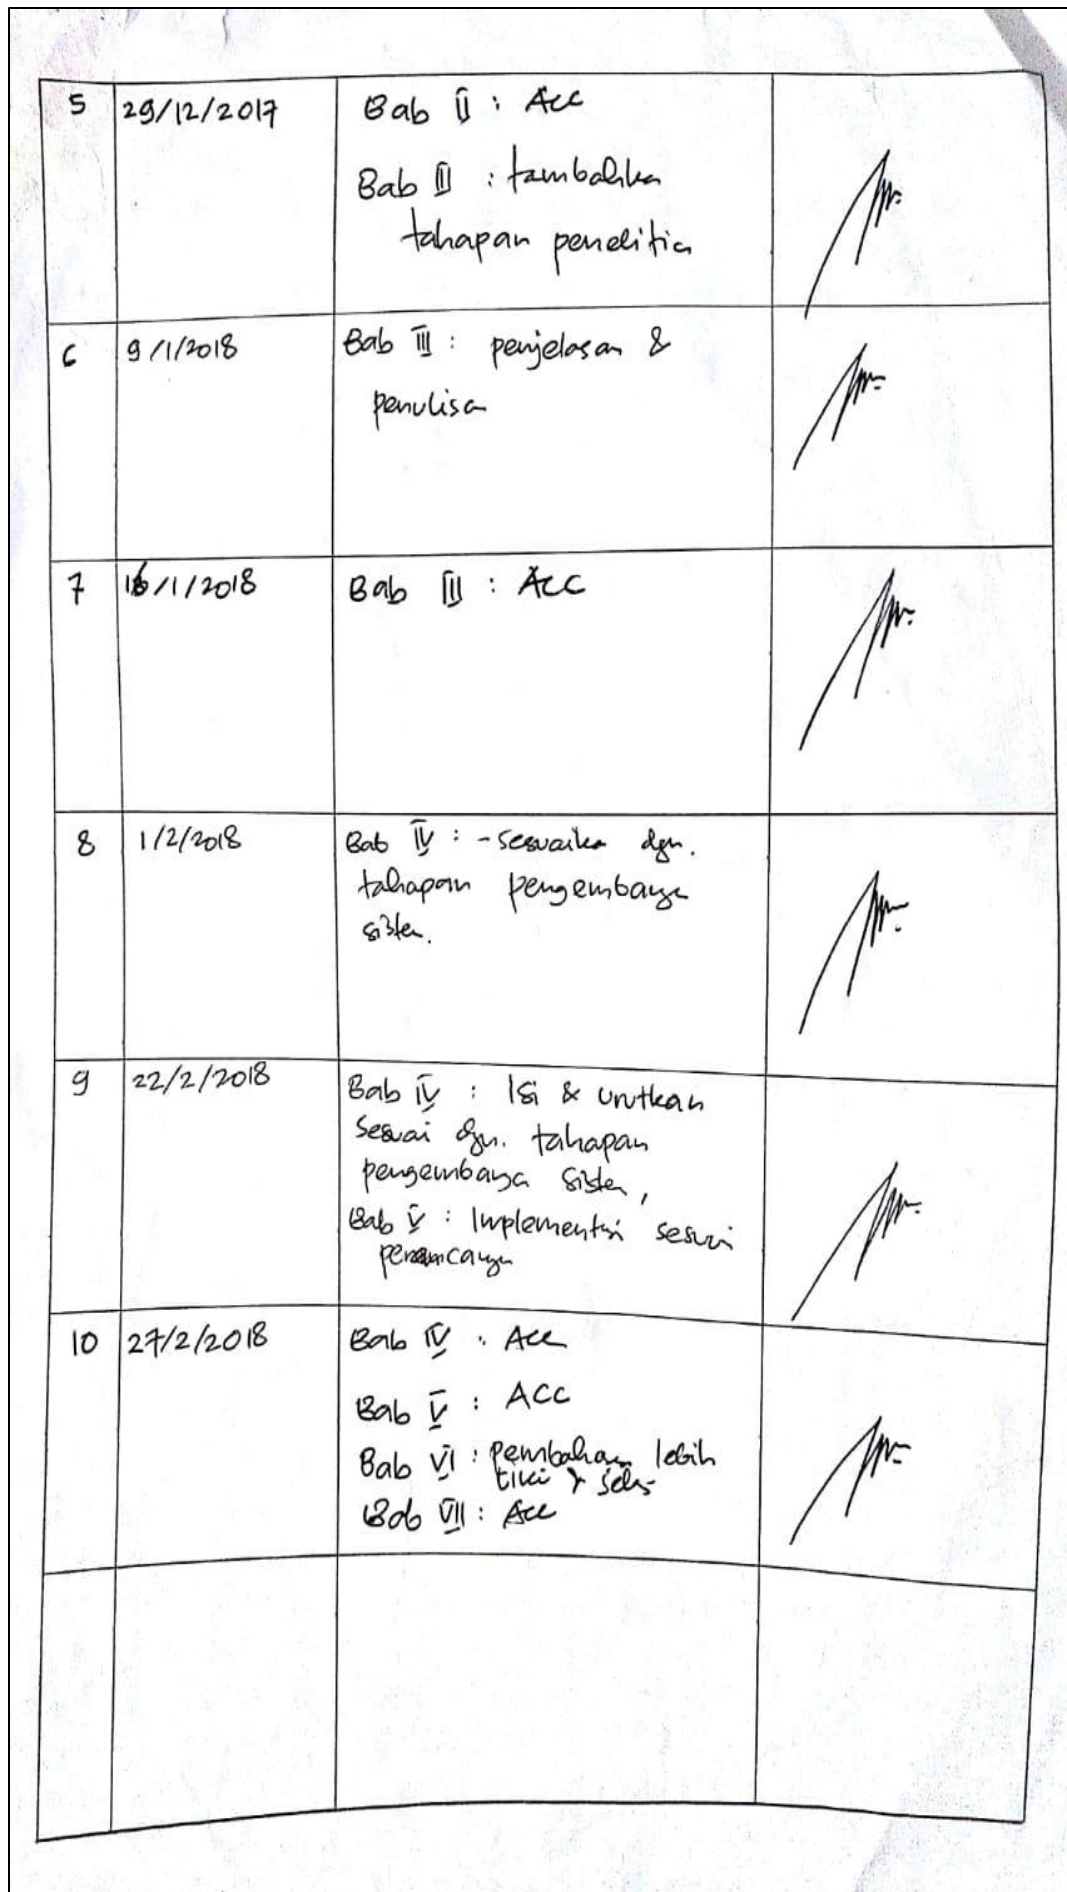 5 29/12/2017 Bab II : Acc
Bab III : tambahka
tahapan penelitia
6 9/1/2018 Bab III : penjelasan &
penulisa
7 16/1/2018 Bab III : Acc
8 1/2/2018 Bab IV : - sesuaika dgn.
tahapan pengembanga
sistem.
9 22/2/2018 Bab IV : Isi & urutkan
sesuai dgn. tahapan
pengembanga sistem,
Bab V : Implementasi sesuai
perancanga
10 27/2/2018 Bab IV : Acc
Bab V : ACC
Bab VI : pembahasan lebih
Bab VII : Acc